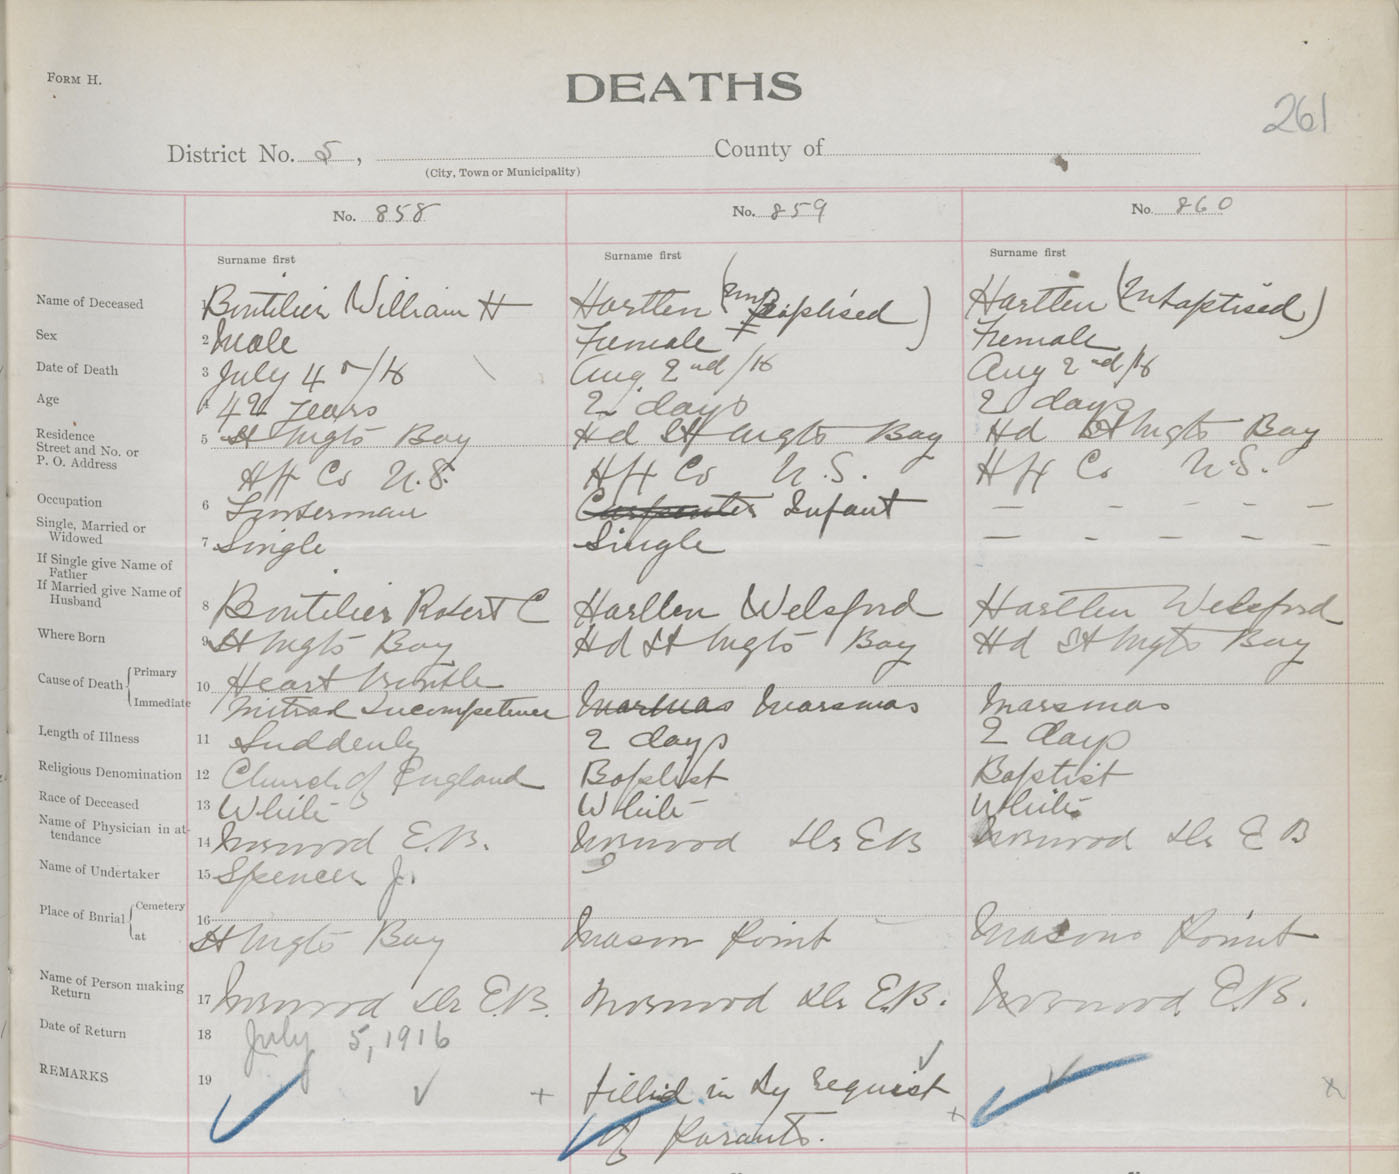 FORM H.
DEATHS
261
District No. 5, County of
(City, Town or Municipality)
No. 858 No. 859 No. 860
Surname first Surname first Surname first
Name of Deceased 1 Boutilier William H Hartlen (Unbaptised) Hartlen (Unbaptised)
Sex 2 Male Female Female
Date of Death 3 July 4 /16 Aug 2nd/16 Aug 2nd/16
Age 4 42 years 2 days 2 days
Residence Street and No. or P. O. Address 5 St Mgts Bay Hd St Mgts Bay Hd St Mgts Bay
Hfx Co N.S. Hfx Co N.S. Hfx Co N.S.
Occupation 6 Lumberman Carpenter Infant — - - - -
Single, Married or Widowed 7 Single Single — - - - -
If Single give Name of Father
If Married give Name of Husband 8 Boutilier Robert C Hartlen Welsford Hartlen Welsford
Where Born 9 St Mgts Bay Hd St Mgts Bay Hd St Mgts Bay
Cause of Death Primary 10 Heart
Immediate Mitral Incompetence Marmas Marsmas Marsmas
Length of Illness 11 Suddenly 2 days 2 days
Religious Denomination 12 Church of England Baptist Baptist
Race of Deceased 13 White White White
Name of Physician in attendance 14 Norwood E.B. Norwood Dr E B Norwood Dr E B
Name of Undertaker 15 Spencer J.
Place of Burial Cemetery 16
at St Mgts Bay Mason Point Masons Point
Name of Person making Return 17 Norwood Dr E.B. Norwood Dr E.B. Norwood E.B.
Date of Return 18 July 5, 1916
REMARKS 19 filled in by request
of Parants.